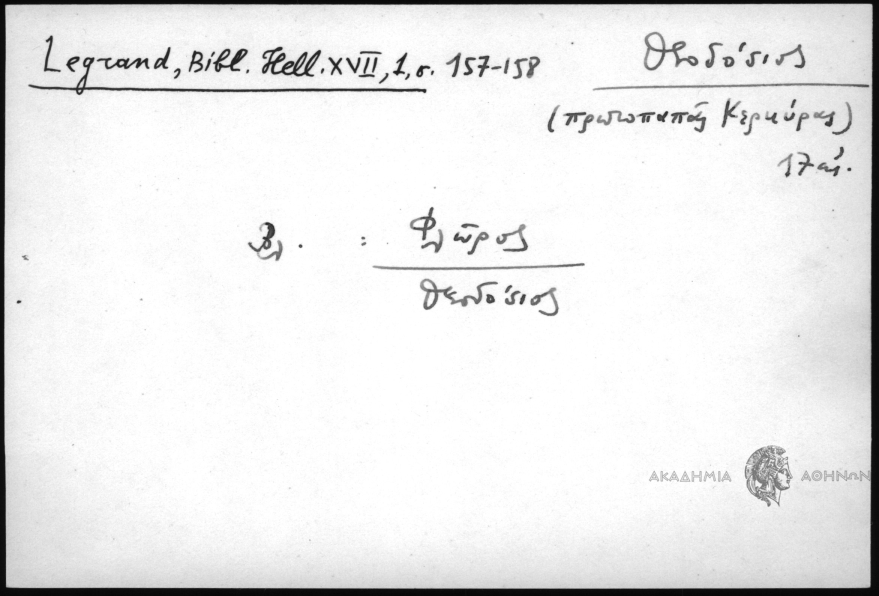 Legrand, Bibl. Hell. XVII, 1, σ. 157-158
Θεοδόσιος
(πρωτοπαπᾶς Κερκύρας)
17 αἰ.
Βλ. : Φλῶρος
Θεοδόσιος
ΑΚΑΔΗΜΙΑ ΑΘΗΝΩΝ